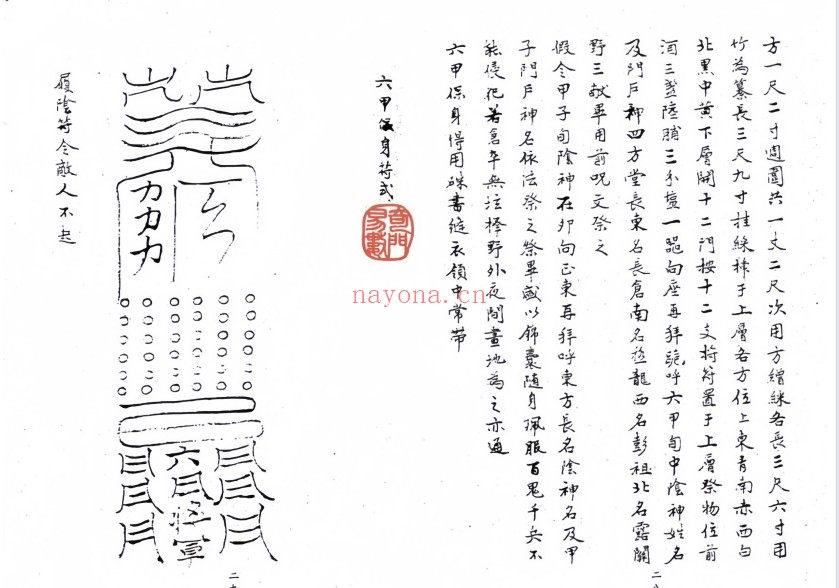 方一尺二寸週圍共一丈二尺次用方繒綵各長三尺六寸用
竹為纂長三尺九寸挂綵掾于上層各方位上東青南赤西白
北黑中黃下層開十二門按十二支將符置于上層祭物位前
酒三盞陸脯三禾壇一器向座再拜跪呼六甲旬中陰神姓名
及門戶神四方堂長東名長倉南名蒼龍西名彭祖北名露闗
野三献畢用前呪文祭之
假令甲子旬陰神在卯向正東再拜呼東方長名陰神名及甲
子門戶神名依法祭之祭畢盛以錦囊随身珮服百鬼千兵不
能侵犯若倉卒無法擇野外夜間畫地為之亦通
六甲保身得用硃書縫衣領中常带
六甲保身符式
奇門
易數
nayona.cn
力力力
六
将軍
履陰符令敵人不起
二
二